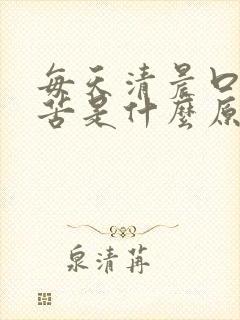 每天清晨口
苦是什麼原
泉清苒